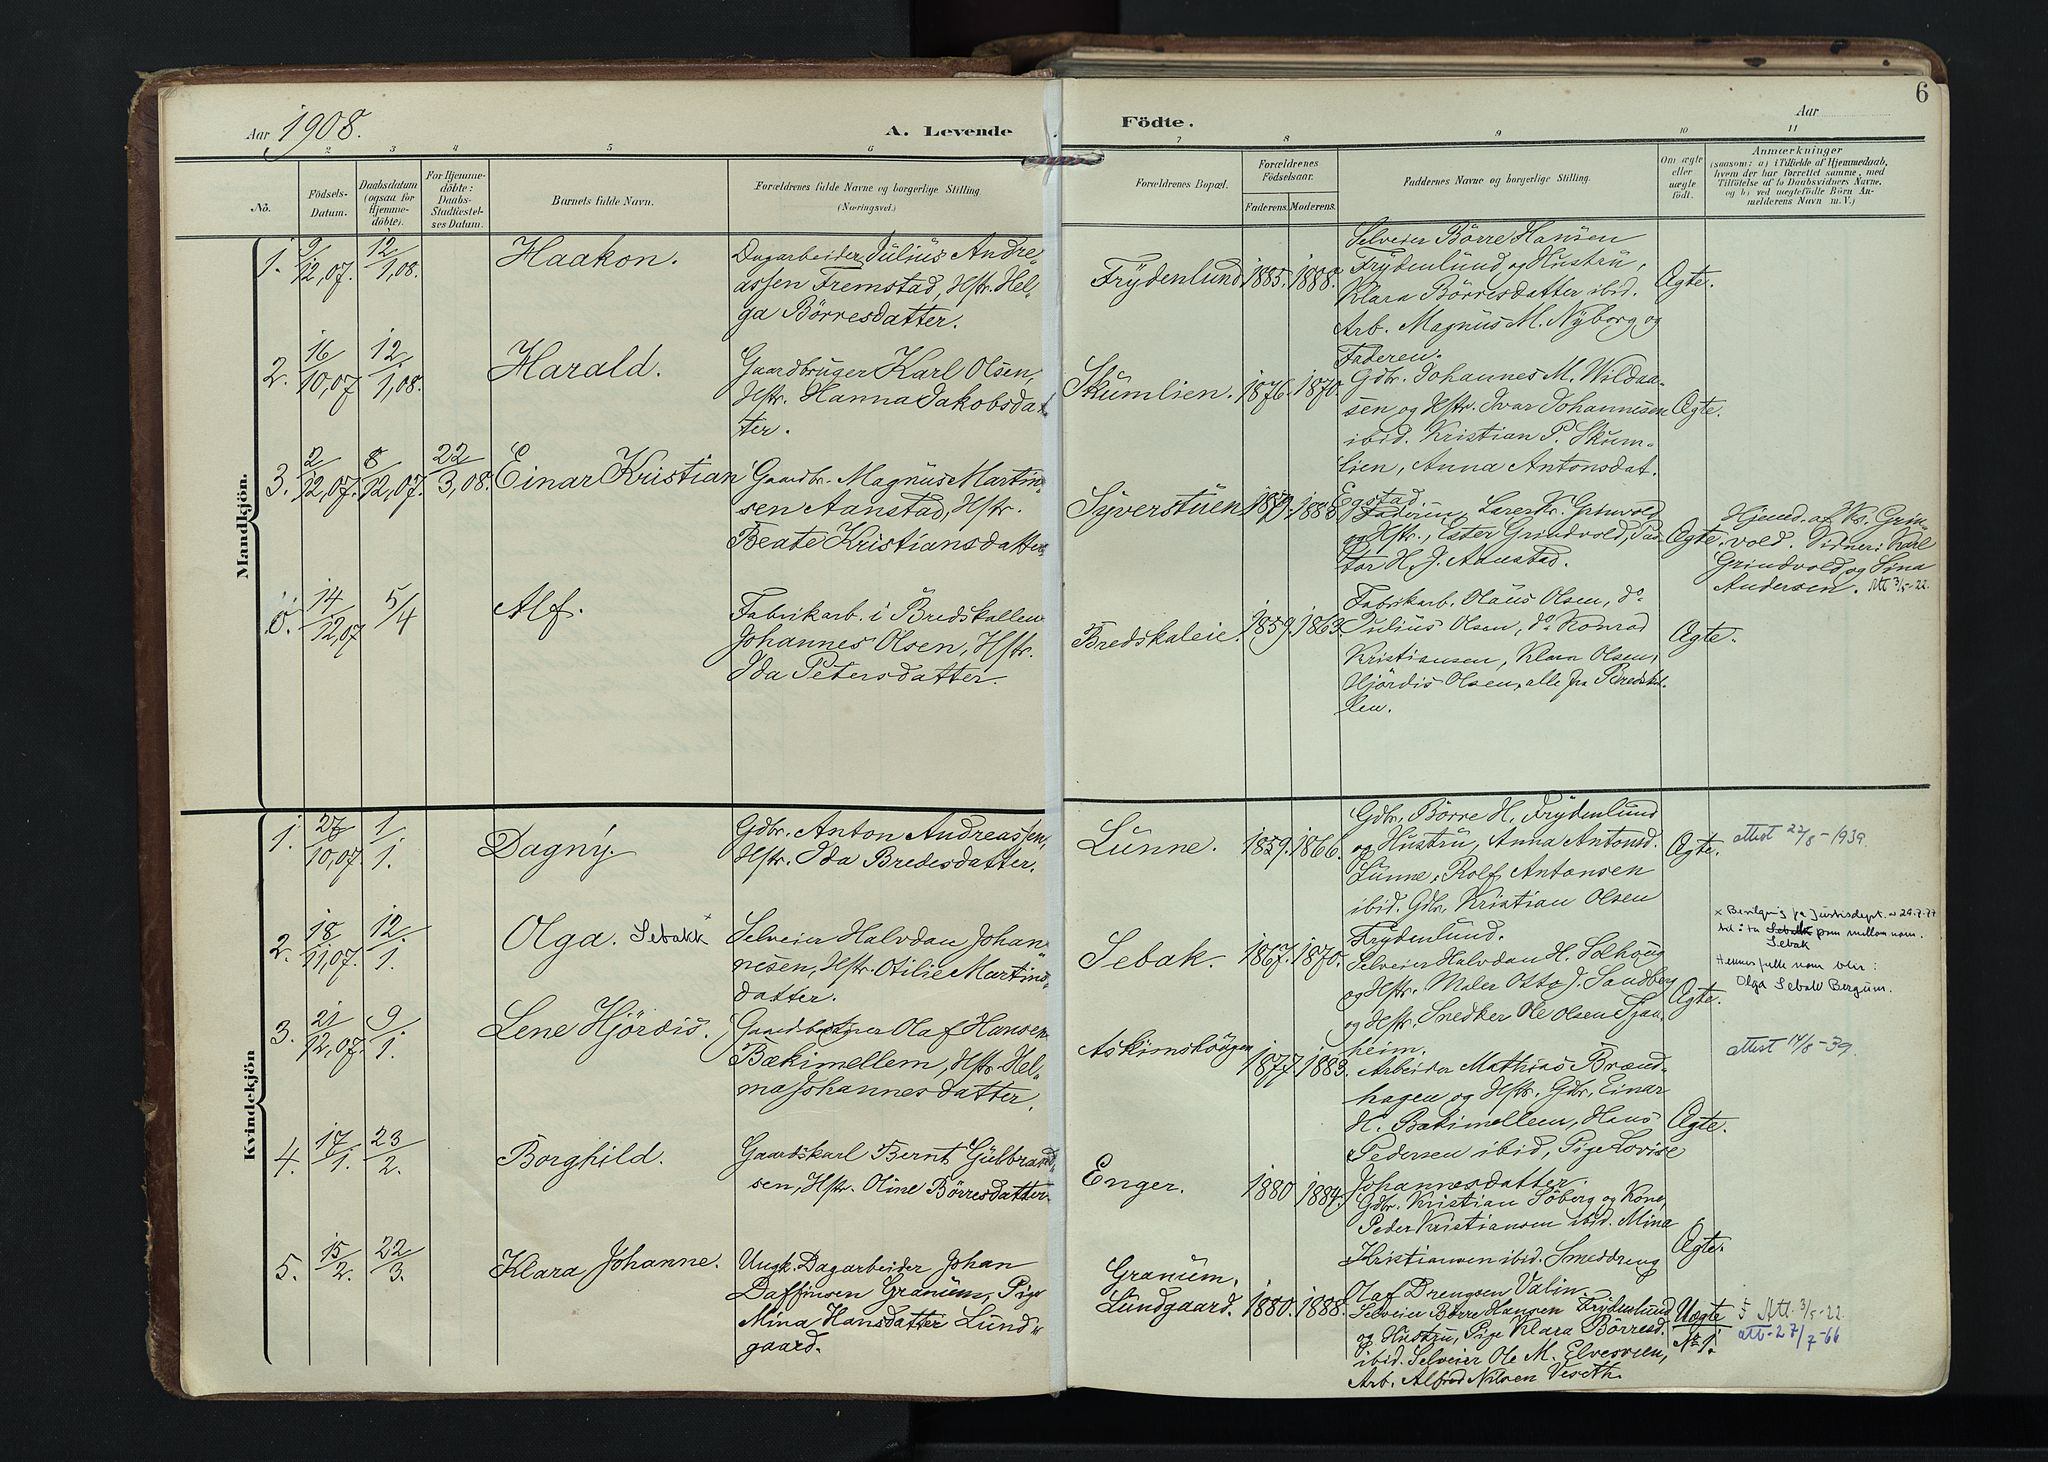 6
Aar 1908.
A. Levende
Födte.
Aar
2 3 4 5 6 7 8 9 10 11
Nô.
Födsels-
Datum.
Daabsdatum
(ogsaa for
Hjemme-
döbte).
For Hjemme-
döbte:
Daabs-
Stadfæstel-
ses Datum.
Barnets fulde Navn.
Forældrenes fulde Navne og borgerlige Stilling
(Næringsvei.)
Forældrenes Bopæl.
Forældrenes
Fødselsaar.
Faderens. Moderens.
Faddernes Navne og borgerlige Stilling.
Om ægte
eller
uægte
födt.
Anmærkninger
(saasom: a) i Tilfælde af Hjemmedaab,
hvem der har forrettet samme, med
Tilföielse af to Daabsvidners Navne.
og b) ved uægtefödte Börn An-
melderens Navn m. V.)
Mandkjön.
1. 9/12,07. 12/1,08. Haakon.
Dagarbeider Julius Andre-
assen Fremstad, Hstr. Hel-
ga Börresdatter.
Frydenlund 1885. 1888.
Selveier Börre Hansen
Frydenlund og Hustru,
Klara Börresdatter ibid.
Arb. Magnus M. Nyborg og
Faderen.
Ægte.
2. 16/10,07. 12/1,08. Harald.
Gaardbruger Karl Olsen,
Hstr. Hanna Jakobsdat-
ter.
Skumlien. 1876. 1870.
Gdbr. Johannes M. Wildaa-
sen og Hstr. Ivar Johannesen
ibid. Kristian P. Skum-
lien, Anna Antonsdat.
Ægte.
3. 2/12,07. 8/12,07. 22/3,08. Einar Kristian
Gaardbr. Magnus Martin-
sen Aanstad, Hstr.
Beate Kristiansdatter
Syverstuen 1879. 1885
Egstad.
Faderen, Lærer Kr. Grinvold
og Hstr., Ester Grindvold, Pas-
tor H. J. Aanstad.
Ægte.
Hjemd. af Kr. Grin-
vold. Vidner: Karl
Grindvold og Sina
Andersen. Att 3/5-22.
14/12,07 5/4 Alf.
Fabrikarb. i Bredskallen
Johannes Olsen, Hstr.
Ida Petersdatter.
Bredskaleie. 1859. 1863.
Fabrikarb. Olaus Olsen, do
Julius Olsen, do Konrad
Kristiansen, Klara Olsen,
Hjördis Olsen, alle fra Bredskal-
len.
Ægte.
Kvindekjön
1. 27/10,07 1/1. Dagny.
Gdbr. Anton Andreassen,
Hstr. Ida Bredesdatter.
Lunne. 1859. 1866.
Gdbr. Börre H. Frydenlund
og Hustru, Anna Antonsd.
Lunne, Rolf Antonsen
ibid. Gdbr. Kristian Olsen
Frydenlund.
Ægte.
Attest 22/8-1939.
2. 18/11,07. 12/1. Olga. Sebakk x
Selveier Halvdan Johan-
nesen, Hstr. Otilie Martins-
datter.
Sebak. 1867. 1870.
Selveier Halvdan H. Solhöug
og Hstr. Maler Otto J. Sandberg
og Hstr. Snedker Ole Olsen Span-
heim.
Ægte.
x Bevilgning fra Justisdept. av
til å ta Sebakk som mellomnavn.
Sebak
Hennes fulle navn blir:
Olga Sebak Bergum.
3. 21/12,07. 9/1. Lene Hjördis.
Gaardbruger Olaf Hansen
Bækimellem, Hstr. Hel-
ma Johannesdatter.
Askimshöugen 1877. 1883.
Arbeider Mathias Brænd-
hagen og Hstr. Gdbr. Einar
H. Bækimellem, Hans
Pedersen ibid, Pige Lovise
Johannesdatter.
Ægte.
Attest 14/8-39.
4. 17/1. 23/2. Borghild.
Gaardskarl Bernt Gulbrand-
sen, Hstr. Oline Börresdatter.
Enger. 1880 1884.
Gdbr. Kristian Söberg og Kone,
Peder Kristiansen ibid. Mina
Kristiansen ibid. Smeddreng
Olaf Drengsen Valin.
Ægte.
5. 15/2. 22/3. Klara Johanne.
Ungk. Dagarbeider Johan
Daffinsen Granum, Pige
Mina Hansdatter Lund-
gaard.
Granum.
Lundgaard. 1880. 1888.
Selveier Börre Hansen Frydenlund
og Hustru, Pige Klara Börresd.
ibid. Selveier Ole M. Elvesveen,
Arb. Alfred Nilsen Veseth.
Uægte
No 1.
Att. 3/5-22.
att-27/7-66